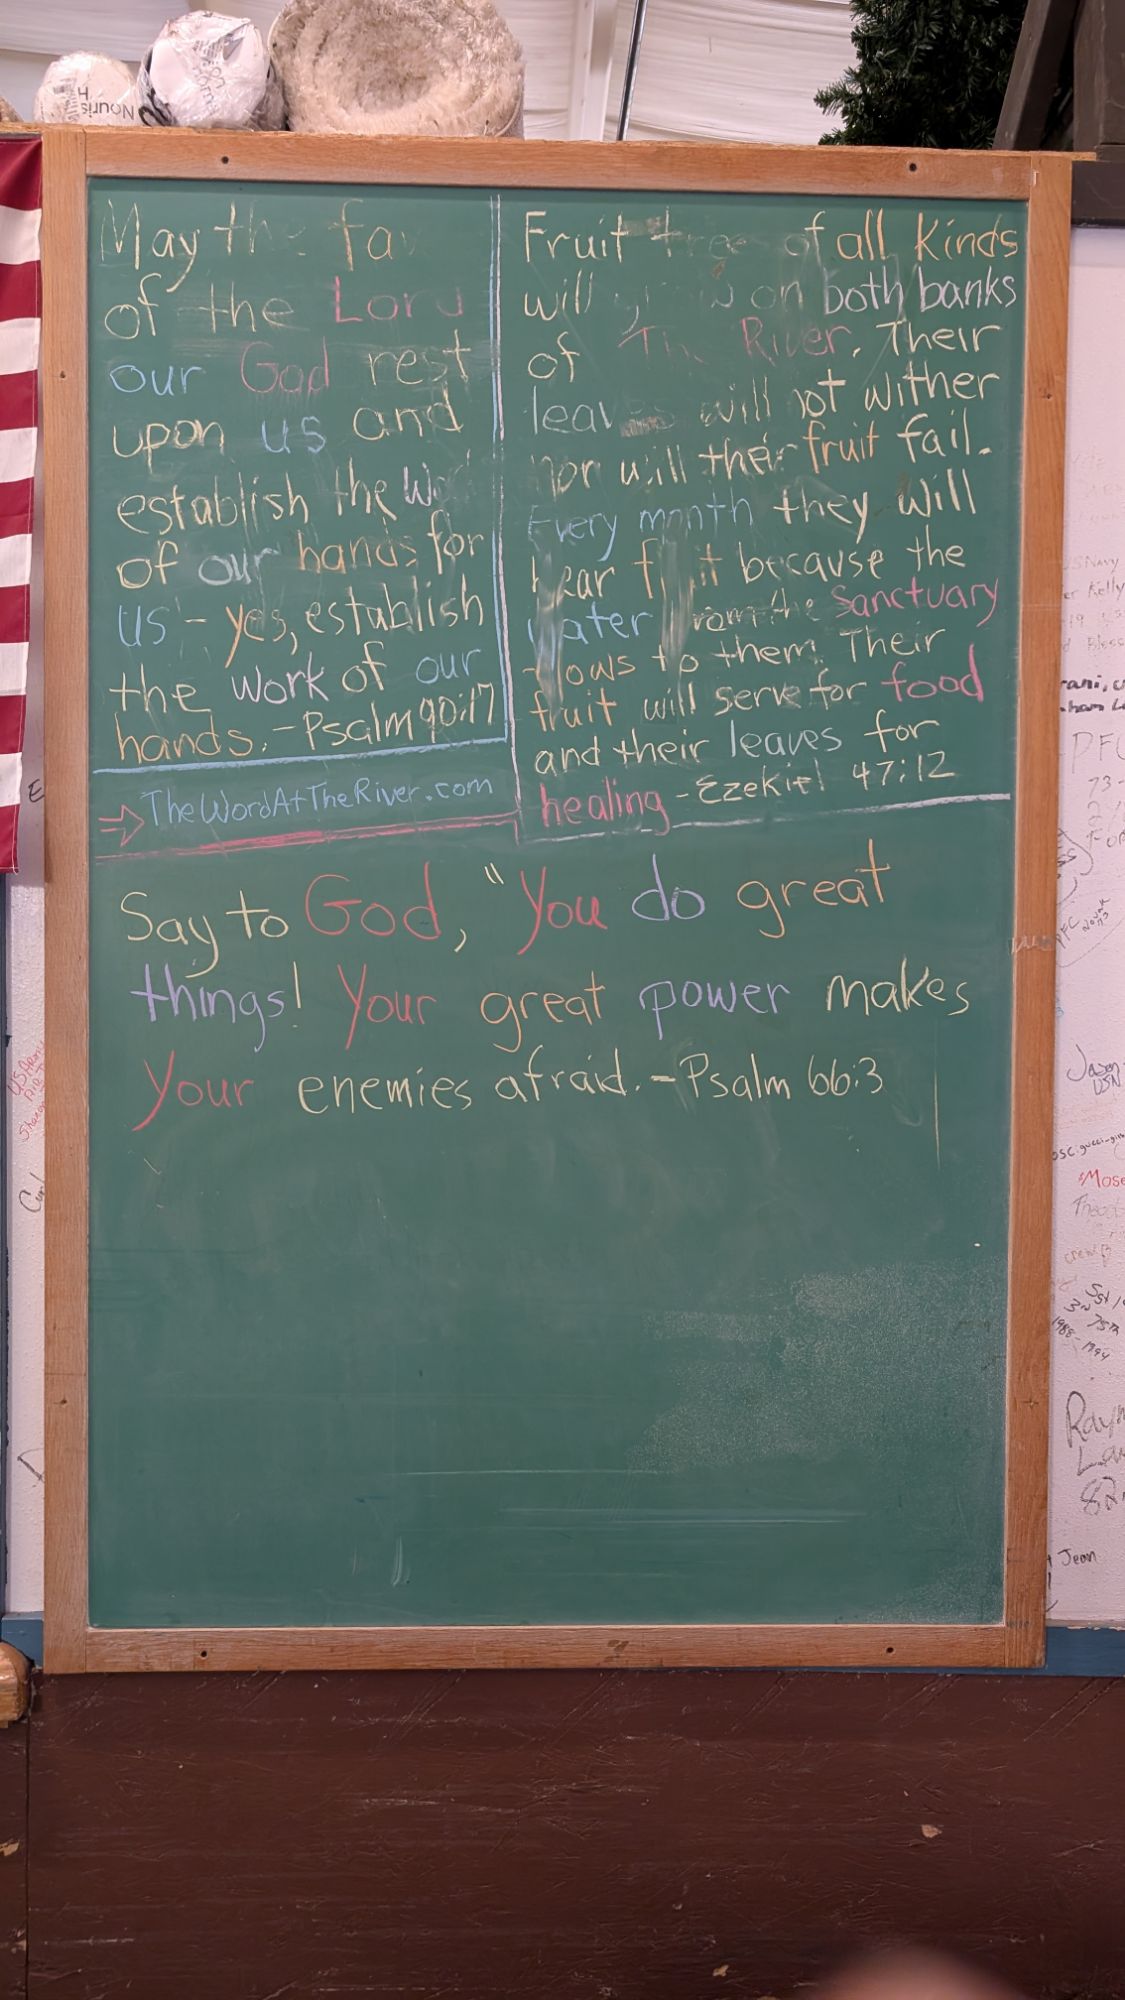 May the fa
of the Lord
our God rest
upon us and
establish the Wo
of our hands for
us - yes, establish
the work of our
hands. - Psalm 90:17
TheWordAtTheRiver.com
Fruit tree of all Kinds
will grow on both banks
of The River. Their
leaves will not wither
nor will their fruit fail.
Every month they will
bear fruit because the
water from the Sanctuary
flows to them. Their
fruit will serve for food
and their leaves for
healing - Ezekiel 47:12
Say to God, "You do great
things! Your great power makes
Your enemies afraid. - Psalm 66:3
Nouris
H
US Army
SNavy
Kelly
Bless
PFC
73-
PFC
Jason
USN
Mose
1988-1994
Raym
La
82
Jean